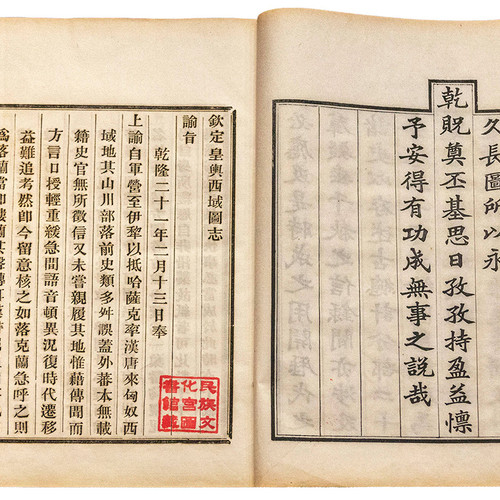 久長圖所以永
乾貺奠丕基思日孜孜持盈益懍
予安得有功成無事之說哉
欽定皇輿西域圖志
諭旨
乾隆二十一年二月十三日奉
上諭自軍營至伊犂以抵哈薩克率漢唐來匈奴西
域地其山川部落前史類多舛誤蓋外番本無載
籍史官無所徵信又未嘗親履其地惟籍傳聞而
方言口授輕重緩急間語音頓異況復時代遷移
益難追考然卽今留意核之如落克蘭急呼之則
爲落蘭當卽樓蘭其聲轉耳
民族文
化宮圖
書館藏